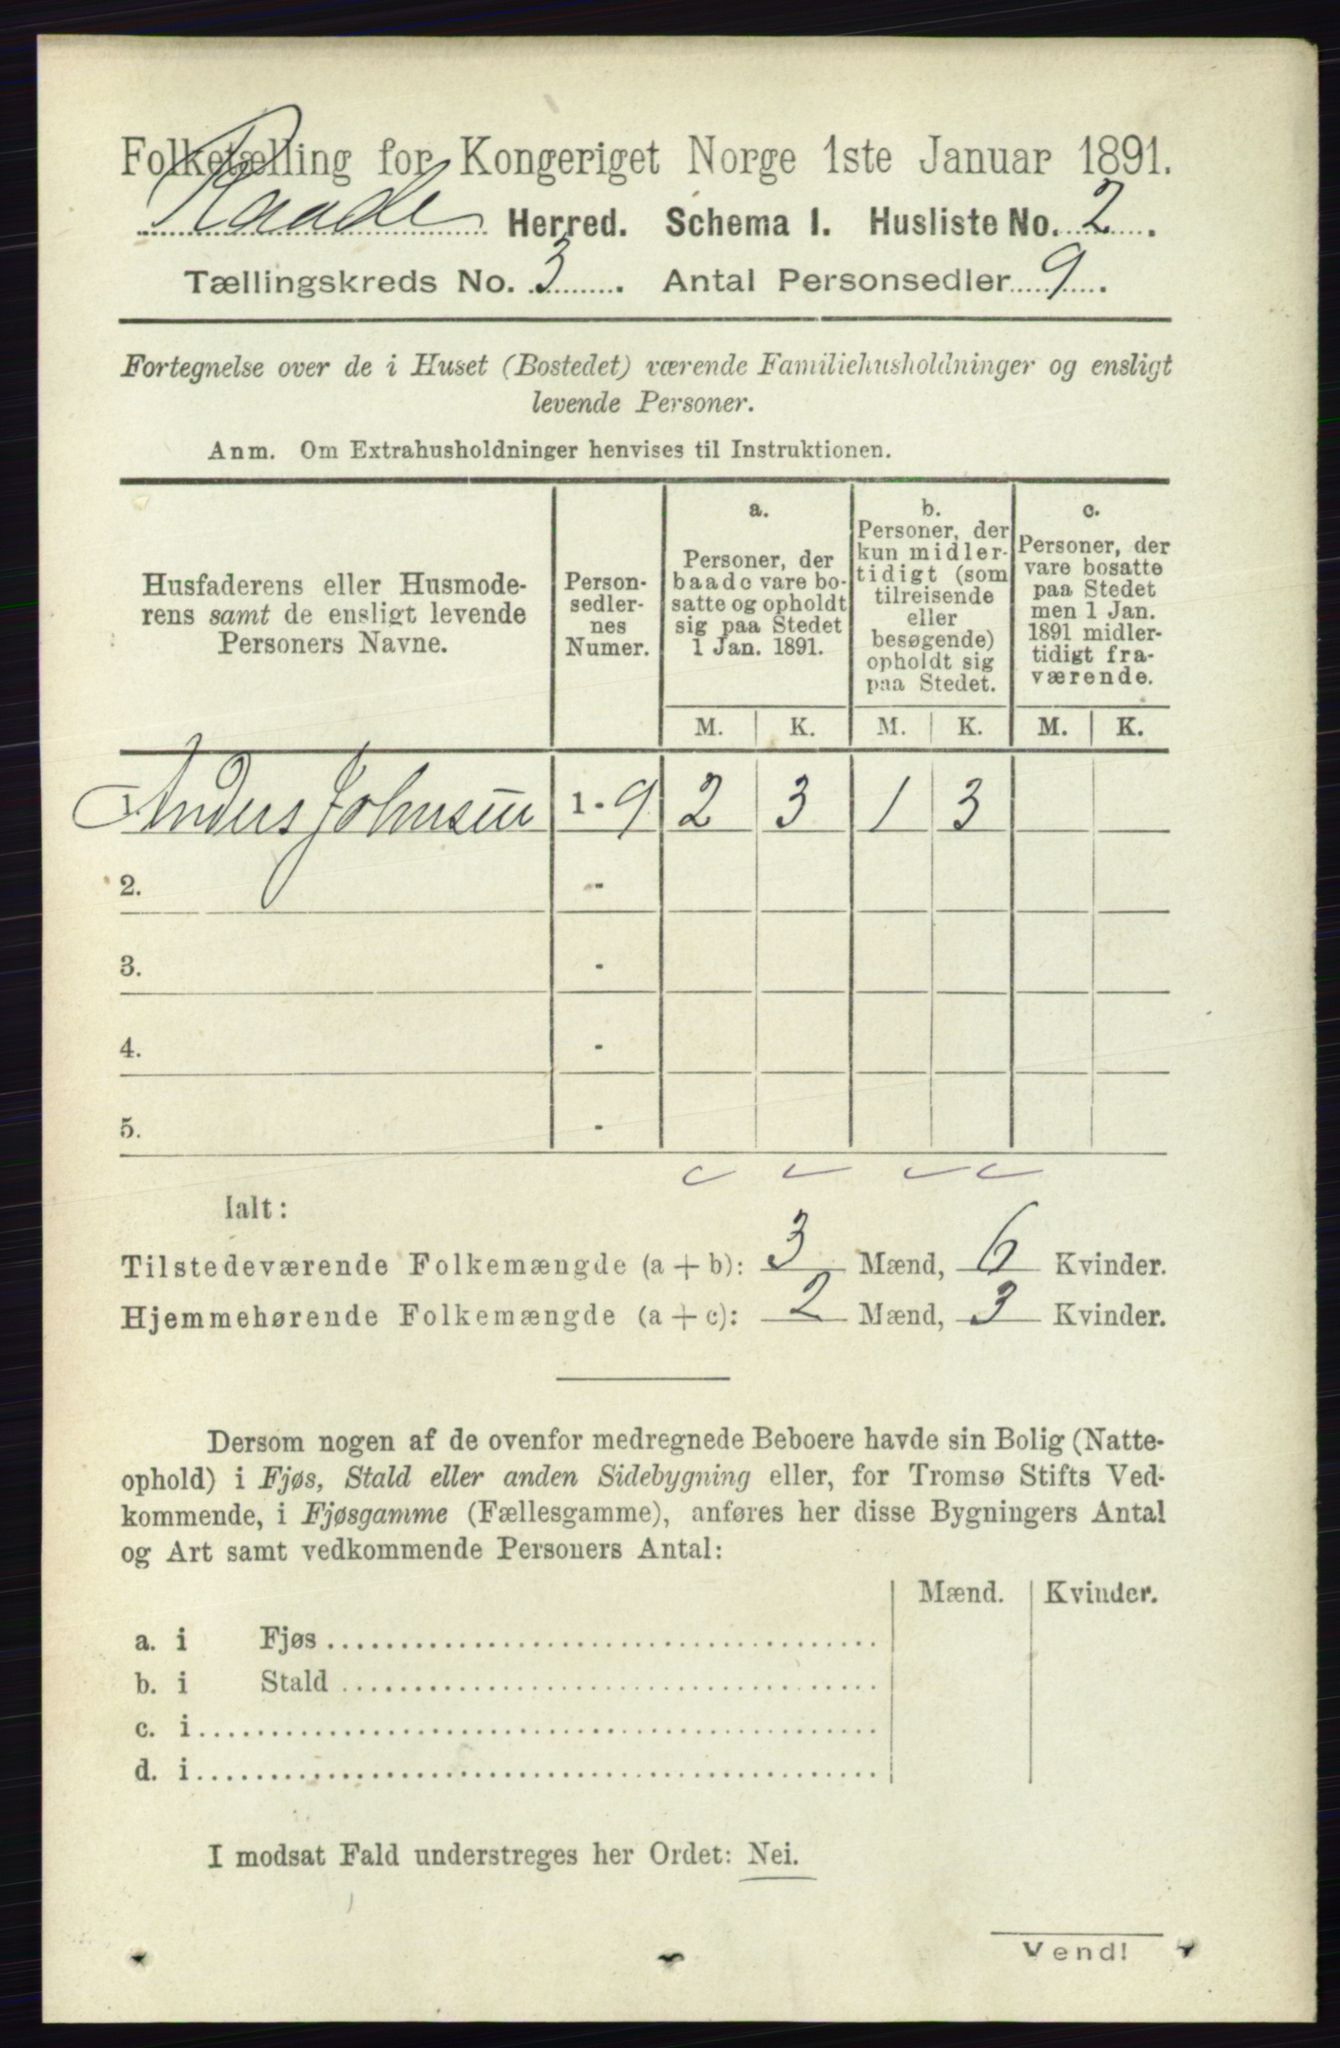 Folketælling for Kongeriget Norge 1ste Januar 1891.
Raade Herred. Schema I. Husliste No. 2.
Tællingskreds No. 3. Antal Personsedler 9.
Fortegnelse over de i Huset (Bostedet) værende Familiehusholdninger og ensligt
levende Personer.
Anm. Om Extrahusholdninger henvises til Instruktionen.
Husfaderens eller Husmode-
rens samt de ensligt levende
Personers Navne.
Person-
sedler-
nes
Numer.
a.
Personer, der
baade vare bo-
satte og opholdt
sig paa Stedet
1 Jan. 1891.
b.
Personer, der
kun midler-
tidigt (som
tilreisende
eller
besøgende)
opholdt sig
paa Stedet.
c.
Personer, der
vare bosatte
paa Stedet
men 1 Jan.
1891 midler-
tidigt fra-
værende.
M. K. M. K. M. K.
Anders Johnsen 1 - 9 2 3 1 3
2. -
3. -
4. -
5. -
Ialt:
Tilstedeværende Folkemængde (a + b): 3 Mænd, 6 Kvinder.
Hjemmehørende Folkemængde (a + c): 2 Mænd, 3 Kvinder.
Dersom nogen af de ovenfor medregnede Beboere havde sin Bolig (Natte-
ophold) i Fjøs, Stald eller anden Sidebygning eller, for Tromsø Stifts Ved-
kommende, i Fjøsgamme (Fællesgamme), anføres her disse Bygningers Antal
og Art samt vedkommende Personers Antal:
Mænd. Kvinder.
a. i Fjøs
b. i Stald
c. i
d. i
I modsat Fald understreges her Ordet: Nei.
Vend!